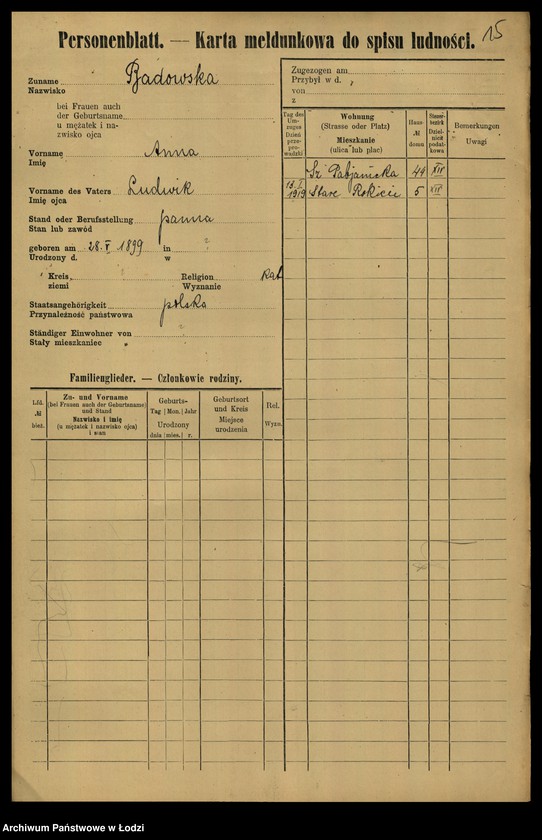 15
Personenblatt. — Karta meldunkowa do spisu ludności.
Zuname Badowska
Nazwisko
bei Frauen auch
der Geburtsname
u mężatek i na-
zwisko ojca
Vorname Anna
Imię
Vorname des Vaters Ludwik
Imię ojca
Stand oder Berufsstellung panna
Stan lub zawód
geboren am 28. V 1899 in ?
Urodzony d. w
Kreis ? Religion Kat
ziemi Wyznanie
Staatsangehörigkeit polska
Przynależność państwowa
Ständiger Einwohner von ?
Stały mieszkaniec „
Zugezogen am
Przybył w d. „
von
z
Tag des Um-zuges Dzień prze-prowadzki
Wohnung
(Strasse oder Platz)
Mieszkanie
(ulica lub plac)
Haus- № domu
Steuer-bezirk Dziel-nica podat-kowa
Bemerkungen
Uwagi
Sz Pabjanicka 44 XIV
13. I 1919 Stare Rokicie 5 XIV
Familienglieder. — Członkowie rodziny.
Lfd. № bież.
Zu- und Vorname
(bei Frauen auch der Geburtsname)
und Stand
Nazwisko i imię
(u mężatek i nazwisko ojca)
i stan
Geburts-
Tag | Mon. | Jahr
Urodzony
dnia | mies. | r.
Geburtsort
und Kreis
Miejsce
urodzenia
Rel.
Wyzn.
Archiwum Państwowe w Łodzi